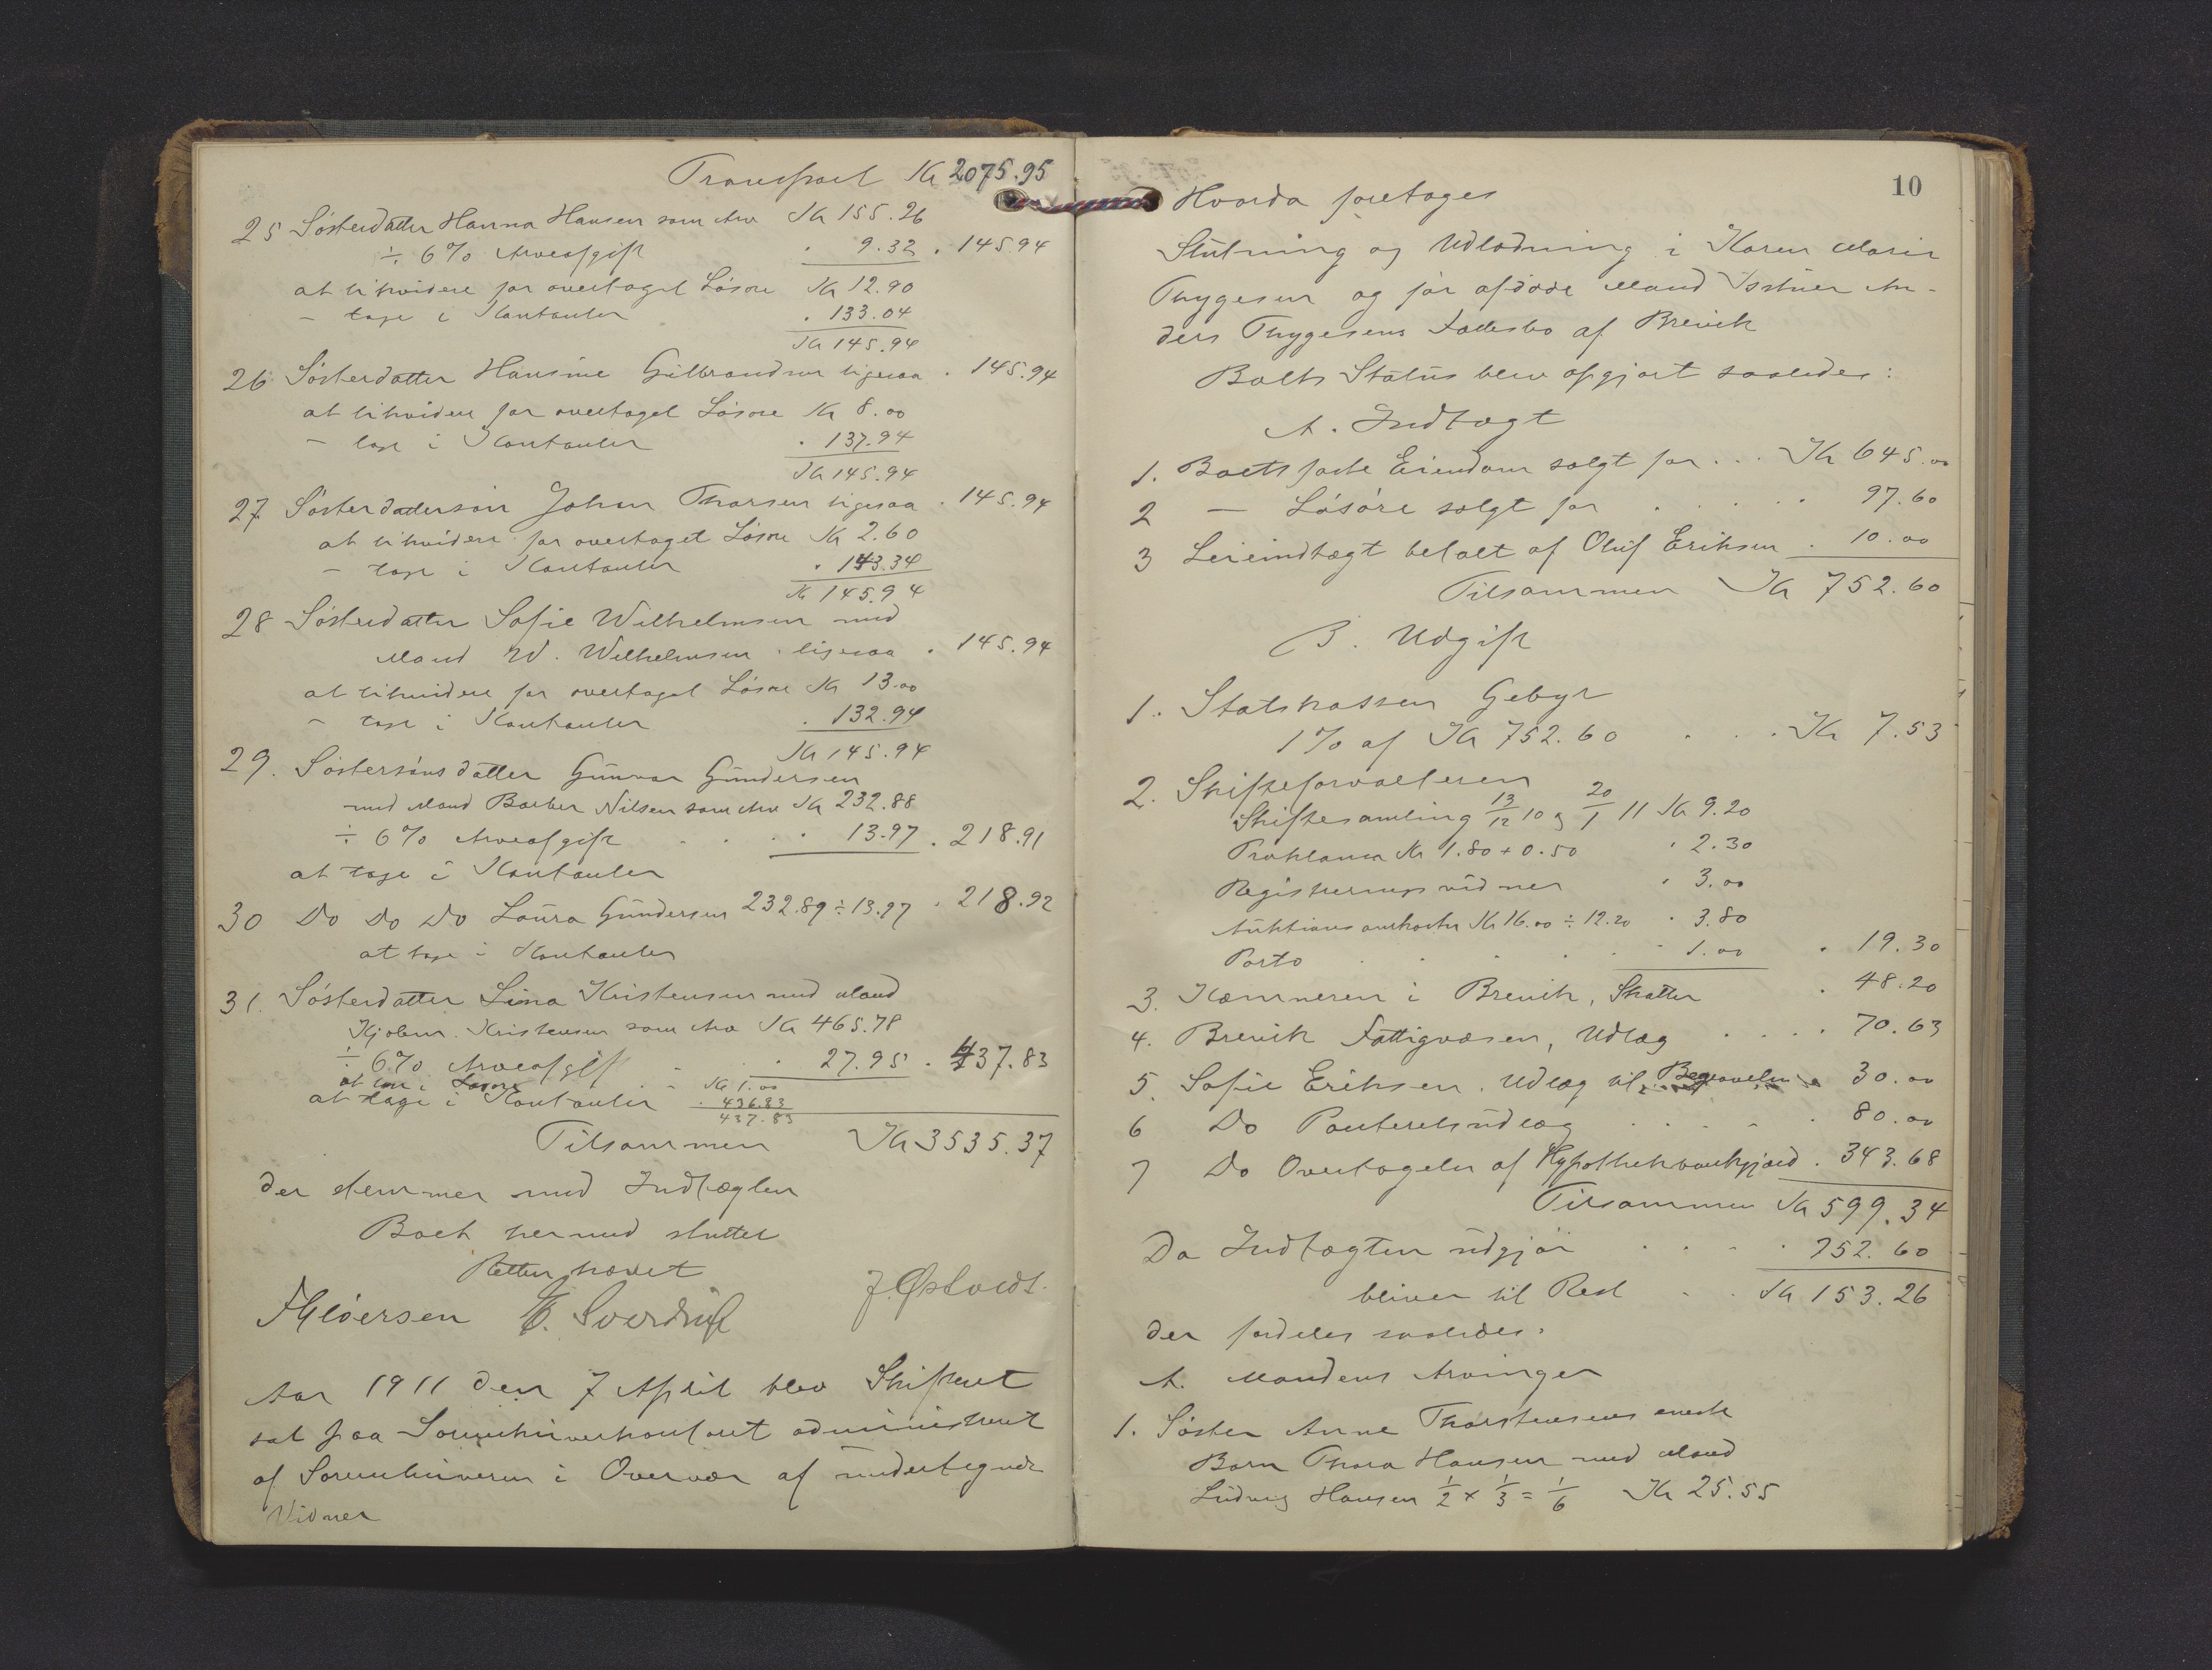 Transport Kr 2075.95
25 Søsterdatter Hanna Hansen som Arv Kr 155.26
÷ 6% Arveafgift . 9.32 . 145.94
at likvidere for overtaget Løsøre Kr 12.90
– tage i Kontanter . 133.04
Kr 145.94
26 Søsterdatter Hansine Gulbrandsen ligesaa . 145.94
at likvidere for overtaget Løsøre Kr 8.00
– tage i Kontanter . 137.94
Kr 145.94
27 Søsterdattersøn Johan Thorsen ligesaa . 145.94
at likvidere for overtaget Løsøre Kr 2.60
– tage i Kontanter . 143.34
Kr 145.94
28 Søsterdatter Sofie Wilhelmsen med
Mand W. Wilhelmsen ligesaa . 145.94
at likvidere for overtaget Løsøre Kr 13.00
– tage i Kontanter . 132.94
Kr 145.94
29. Søstersønsdatter Gunvor Gundersen
med Mand Barber Nilsen som Arv Kr 232.88
÷ 6% Arveafgift . . . . 13.97 . 218.91
at tage i Kontanter
30 Do Do Do Laura Gundersen 232.89 ÷ 13.97 . 218.92
at tage i Kontanter
31. Søsterdatter Lina Kristensen med Mand
Kjøbm. Kristensen som Arv Kr 465.78
÷ 6% Arveafgift . . 27.95 . 437.83
at tage i Løsøre . . Kr 1.00
at tage i Kontanter . 436.83
437.83
Tilsammen Kr 3535.37
der stemmer med Indtægten
Boet hermed sluttet
Retten hævet
E. Sverdrup J. Østvedt.
Aar 1911 den 7 April blev Skifteret
sat paa Sorenskriverkontoret administreret
af Sorenskriveren i Overvær af undertegnede
Vidner
10
Hvorda foretoges
Slutning og Udlodning i Karen Marie
Thygesen og før afdøde Mand An-
ders Thygesens Fællesbo af Brevik
Boets Status blev opgjort saaledes:
A. Indtægt
1. Boets faste Eiendom solgt for . . . Kr 645.00
2 – Løsøre solgt for . . . . 97.60
3 Leieindtægt betalt af Oluf Eriksen . 10.00
Tilsammen Kr 752.60
B. Udgift
1. Statskassen Gebyr
1% af Kr 752.60 . . . Kr 7.53
2. Skifteforvalteren
Skiftesamling 13/12 10 og 20/1 11 Kr 9.20
Proklama Kr 1.80 + 0.50 . 2.30
Registreringsvidner . 3.00
Auktionsomkostn Kr 16.00 ÷ 12.20 . 3.80
Porto . . . . . 1.00 . 19.30
3. Kæmneren i Brevik, Skatter . 48.20
4. Brevik Fattigvæsen, Udlæg . . . . 70.63
5. Sofie Eriksen. Udlæg til Begravelse . 30.00
6 Do Panteretsudlæg . . . . . 80.00
7 Do Overtagelse af Hypothekbankgjæld . 343.68
Tilsammen Kr 599.34
Da Indtægten udgjør . . . . 752.60
bliver til Rest . . Kr 153.26
der fordeles saaledes:
A. Mandens Arvinger
1. Søster Anne Thorstensens eneste
Barn Thora Hansen med Mand
Ludvig Hansen 1/2 × 1/3 = 1/6 Kr 25.55